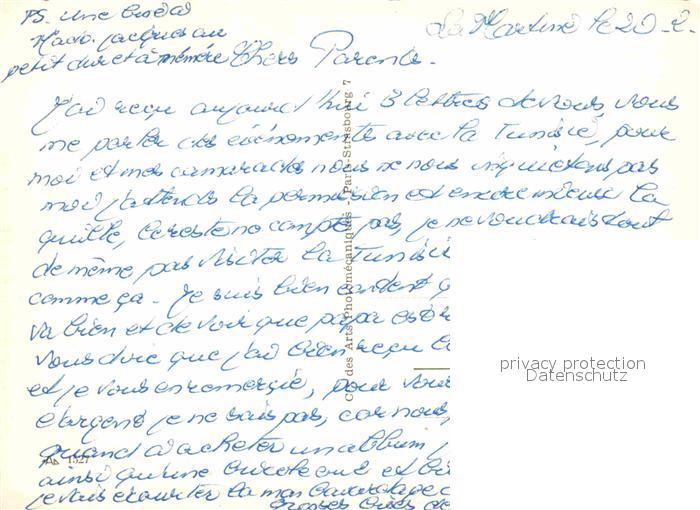 PS. Une
Mado, Jacques au
petit duc et à mémère
La Martine le 20-2-
Chers Parents.
J'ai reçu aujourd'hui 3 lettres de vous, vous
me parlez des événements avec la Tunisie, pour
moi et mes camarades nous ne nous inquiétons pas
moi j'attends la permission et encore mieux la
quille, le reste ne compte pas, je ne voudrais tout
de même pas visiter la Tunisie
comme ça. Je suis bien content q
va bien et de voir que papa est
vous dire que j'ai bien reçu
et je vous en remercie, pour vous
l'argent je ne sais pas, car nous
quand d'acheter un album
ainsi qu'une et
je vais écourter la mon bavardage
Grosses bises de
Cie des Arts Photomécaniques Paris-Strasbourg 7
1527
privacy protection
Datenschutz